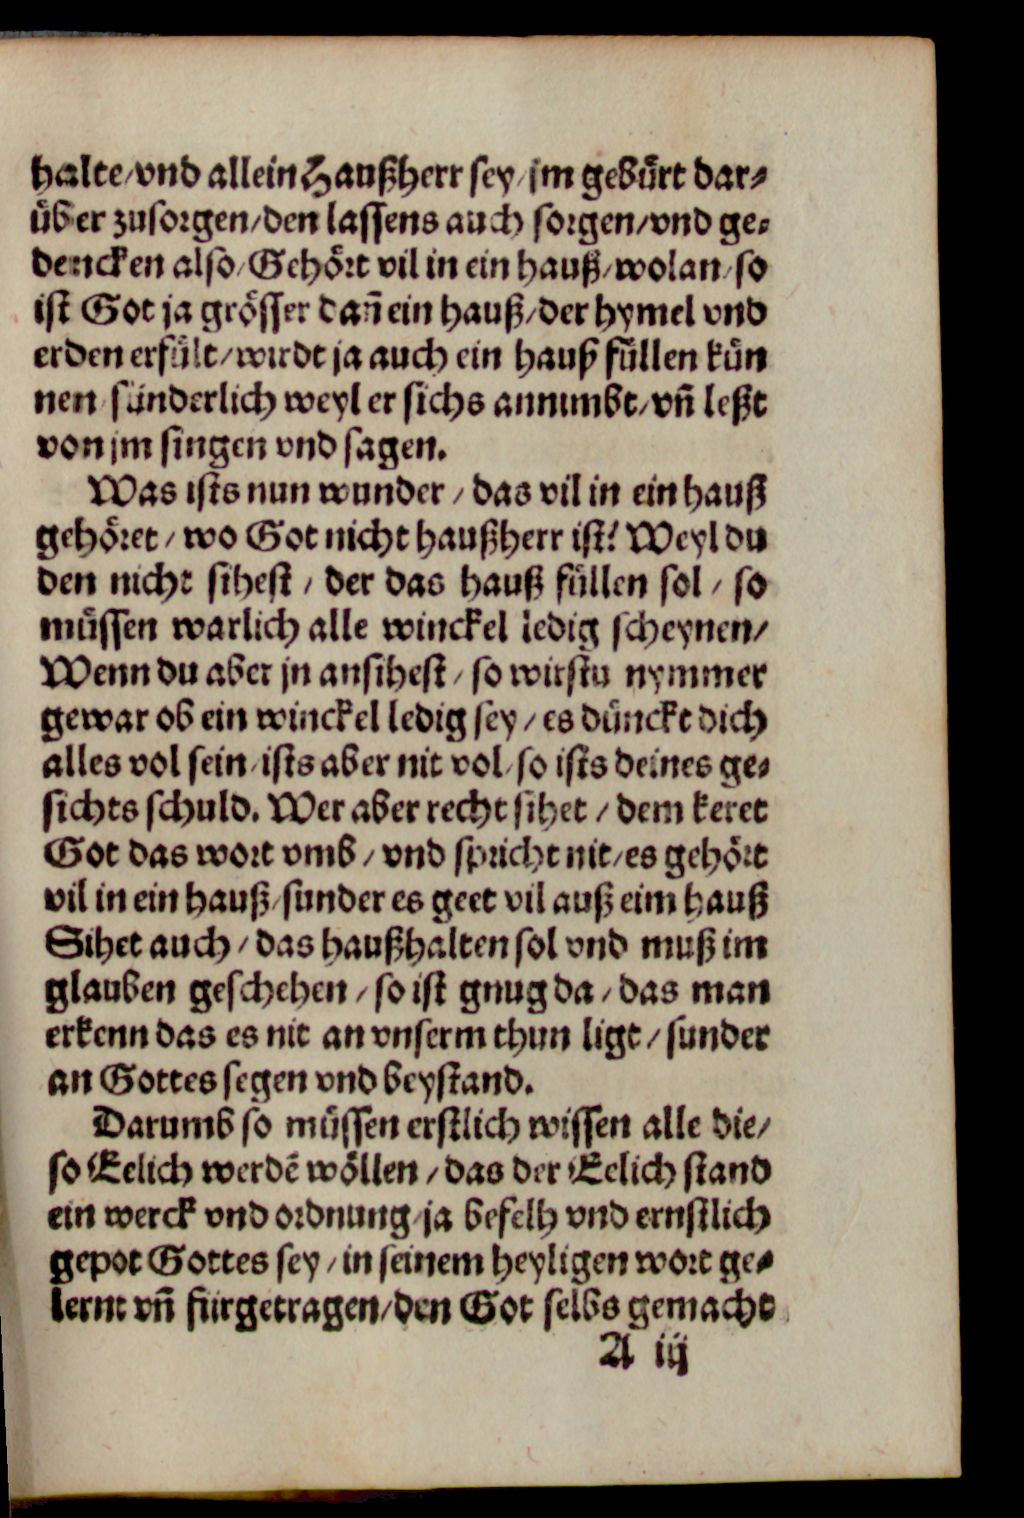 halte/vnd allein Haußherr sey/jm gebuͤrt dar⸗
uͤber zusorgen/den lassens auch sorgen/vnd ge⸗
dencken also/Gehoͤrt vil in ein hauß/wolan/so
ist Got ja groͤsser dañ ein hauß/der hymel vnd
erden erfuͤlt/wirdt ja auch ein hauß fuͤllen kuͤn
nen sünderlich weyl er sichs annimbt/vñ leßt
von jm singen vnd sagen.
Was ists nun wunder/das vil in ein hauß
gehoͤret/wo Got nicht haußherr ist? Weyl du
den nicht sihest/der das hauß fuͤllen sol/so
muͤssen warlich alle winckel ledig scheynen/
Wenn du aber jn ansihest/so wirstu nymmer
gewar ob ein winckel ledig sey/es duͤnckt dich
alles vol sein/ists aber nit vol/so ists deines ge⸗
sichts schuld. Wer aber recht sihet/dem keret
Got das wort vmb/vnd spricht nit/es gehoͤrt
vil in ein hauß/sunder es geet vil auß eim hauß
Sihet auch/das haußhalten sol vnd muß im
glauben geschehen/so ist gnug da/das man
erkenn das es nit an vnserm thun ligt/sunder
an Gottes segen vnd beystand.
Darumb so muͤssen erstlich wissen alle die/
so Eelich werdē woͤllen/das der Eelich stand
ein werck vnd ordnung/ja befelh vnd ernstlich
gepot Gottes sey/in seinem heyligen wort ge⸗
lernt vñ fürgetragen/den Got selbs gemacht
A iij